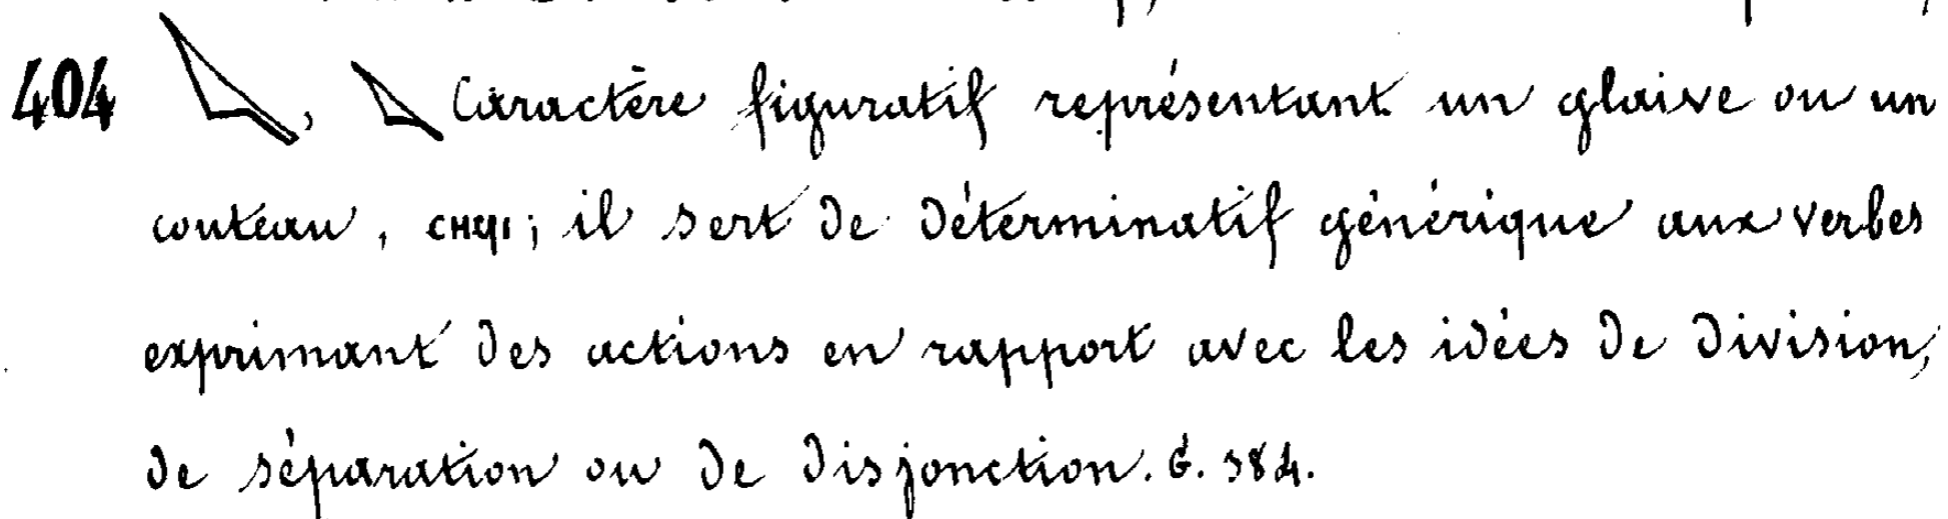 404 , Caractère figuratif représentant un glaive ou un
couteau, ⲥⲏϥⲓ; il sert de déterminatif générique aux verbes
exprimant des actions en rapport avec les idées de division,
de séparation ou de disjonction. G. 384.